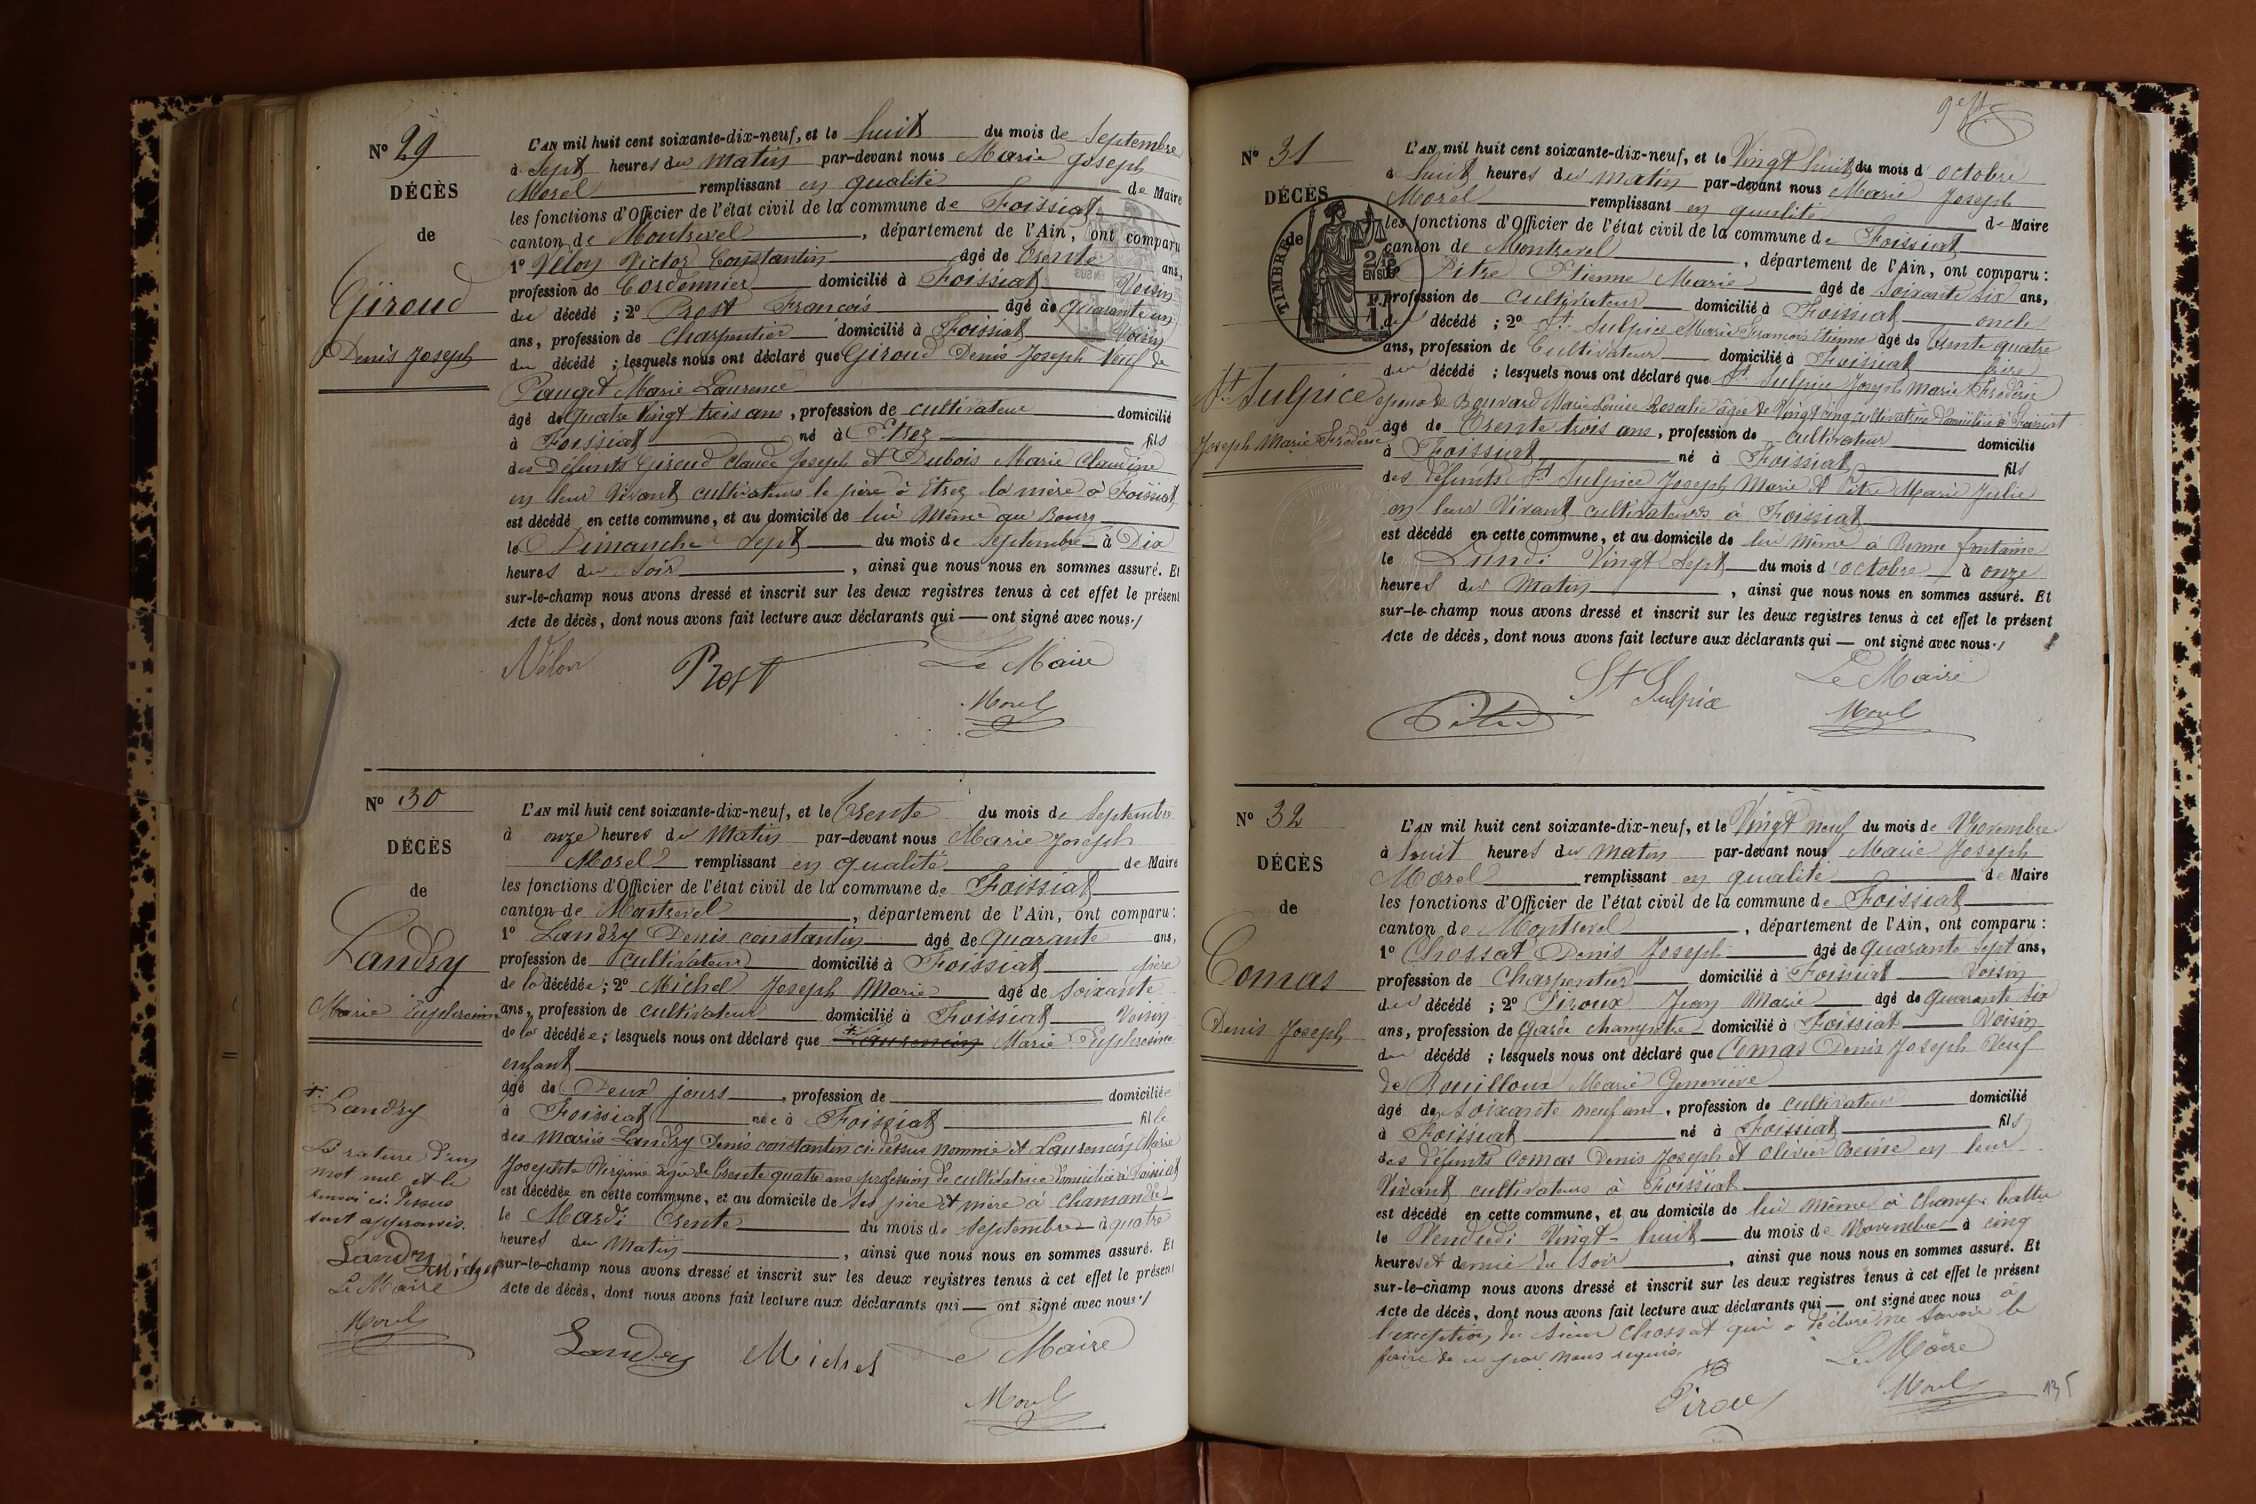 N° 29
DÉCÈS
de
Giroud
Denis Joseph
L'AN mil huit cent soixante-dix-neuf, et le huit du mois de Septembre
à Sept heures du matin par-devant nous Marie Joseph
Morel remplissant en qualité de Maire
les fonctions d'Officier de l'état civil de la commune de Foissiat
canton de Montrevel, département de l'Ain, ont comparu
1° Velon Victor Constantin âgé de trente ans,
profession de Cordonnier domicilié à Foissiat Voisin
du décédé ; 2° Prost François âgé de quarante un
ans, profession de charpentier domicilié à Foissiat Voisin
du décédé ; lesquels nous ont déclaré que Giroud Denis Joseph Veuf de
Pauget Marie Laurence
âgé de Quatre Vingt trois ans, profession de cultivateur domicilié
à Foissiat né à Etrez fils
des Défunts Giroud Claude Joseph et Dubois Marie Claudine
en leur Vivant cultivateurs le père à Etrez la mère à Foissiat
est décédé en cette commune, et au domicile de lui même au Bourg
le Dimanche Sept du mois de Septembre à Dix
heures du Soir, ainsi que nous nous en sommes assuré. Et
sur-le-champ nous avons dressé et inscrit sur les deux registres tenus à cet effet le présent
Acte de décès, dont nous avons fait lecture aux déclarants qui — ont signé avec nous./
Vélon Prost Le Maire
Morel
N° 30
DÉCÈS
de
Landry
Marie Euphrosine
L'AN mil huit cent soixante-dix-neuf, et le Trente du mois de Septembre
à onze heures du Matin par-devant nous Marie Joseph
Morel remplissant en qualité de Maire
les fonctions d'Officier de l'état civil de la commune de Foissiat
canton de Montrevel, département de l'Ain, ont comparu :
1° Landry Denis constantin âgé de Quarante ans,
profession de cultivateur domicilié à Foissiat père
de la décédée ; 2° Michel Joseph Marie âgé de Soixante
ans, profession de cultivateur domicilié à Foissiat Voisin
de la décédée ; lesquels nous ont déclaré que Laurencin Marie Euphrosine
enfant
âgé de Deux jours, profession de domiciliée
à Foissiat née à Foissiat fille
des mariés Landry Denis constantin ci-dessus nommé et Laurencin Marie
Josephte Virginie âgée de trente quatre ans profession de cultivatrice domiciliée à Foissiat
est décédée en cette commune, et au domicile de Ses père et mère à
le Mardi Trente du mois de Septembre à quatre
heures du Matin, ainsi que nous nous en sommes assuré. Et
sur-le-champ nous avons dressé et inscrit sur les deux registres tenus à cet effet le présent
Acte de décès, dont nous avons fait lecture aux déclarants qui — ont signé avec nous./
Landry Michel Le Maire
Morel
+ Landry
La rature d'un
mot nul et le
renvoi ci-dessus
sont approuvés.
Landry
Michel
Le Maire
Morel
N° 31
DÉCÈS
de
St Sulpice
Joseph Marie Frédéric
TIMBRE
2/10 EN SUS
L'AN mil huit cent soixante-dix-neuf, et le Vingt huit du mois d'octobre
à huit heures du matin par-devant nous Marie Joseph
Morel remplissant en qualité de Maire
les fonctions d'Officier de l'état civil de la commune de Foissiat
canton de Montrevel, département de l'Ain, ont comparu :
Pitre Etienne Marie âgé de Soixante Six ans,
profession de cultivateur domicilié à Foissiat oncle
du décédé ; 2° St Sulpice Marie François Etienne âgé de trente quatre
ans, profession de Cultivateur domicilié à Foissiat frère
du décédé ; lesquels nous ont déclaré que St Sulpice Joseph Marie Frédéric
époux de Bouvard Marie Louise Rosalie âgée de Vingt cinq cultivatrice domiciliée à Foissiat
âgé de Trente trois ans, profession de cultivateur domicilié
à Foissiat né à Foissiat fils
des défunts St Sulpice Joseph Marie et Pitre Marie Julie
en leur Vivant cultivateurs à Foissiat
est décédé en cette commune, et au domicile de lui même à Bonne fontaine
le Lundi Vingt Sept du mois d'octobre à onze
heures du Matin, ainsi que nous nous en sommes assuré. Et
sur-le-champ nous avons dressé et inscrit sur les deux registres tenus à cet effet le présent
Acte de décès, dont nous avons fait lecture aux déclarants qui — ont signé avec nous./
Pitre St Sulpice Le Maire
Morel
N° 32
DÉCÈS
de
Comas
Denis Joseph
L'AN mil huit cent soixante-dix-neuf, et le Vingt neuf du mois de Novembre
à huit heures du matin par-devant nous Marie Joseph
Morel remplissant en qualité de Maire
les fonctions d'Officier de l'état civil de la commune de Foissiat
canton de Montrevel, département de l'Ain, ont comparu :
1° Chossat Denis Joseph âgé de Quarante Sept ans,
profession de Charpentier domicilié à Foissiat Voisin
du décédé ; 2° Piroux Jean Marie âgé de Quarante Six
ans, profession de Garde champêtre domicilié à Foissiat Voisin
du décédé ; lesquels nous ont déclaré que Comas Denis Joseph Veuf
de Rouilloux Marie Geneviève
âgé de Soixante neuf ans, profession de cultivateur domicilié
à Foissiat né à Foissiat fils
des défunts Comas Denis Joseph et Olivier Reine en leur
Vivant cultivateurs à Foissiat
est décédé en cette commune, et au domicile de lui même à Champ battu
le Vendredi Vingt-huit du mois de Novembre à cinq
heures et demie du Soir, ainsi que nous nous en sommes assuré. Et
sur-le-champ nous avons dressé et inscrit sur les deux registres tenus à cet effet le présent
Acte de décès, dont nous avons fait lecture aux déclarants qui — ont signé avec nous à
l'exception du Sieur Chossat qui a déclaré ne savoir le
faire de ce par nous requis.
Piroux Le Maire
Morel
135